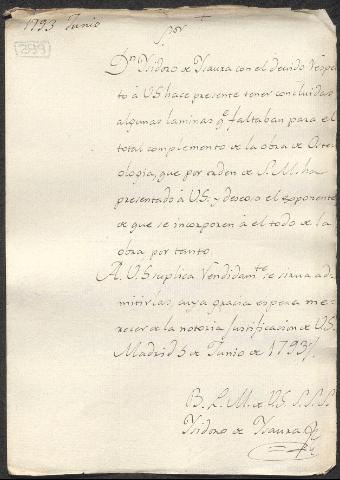 1793 Junio
299
Sor
Dn. Isidoro de Isaura con el devido respe
to à V.S. hace presente tener concluidas
algunas laminas qe. faltaban para el
total complemento de la obra de Osteo
logia, que por orden de S. M. ha
presentado à V.S. y deseoso el exponente
de que se incorporen à el todo de la
obra por tanto
A. V.S. suplica Rendidamte. se sirva ad
mitirlas, cuya gracia espera me
recer de la notoria Justificacion de V.S.
Madrid 5 de Junio de 1793.
B. L. M. de V.S. S.S.S.
Isidoro de Isaura